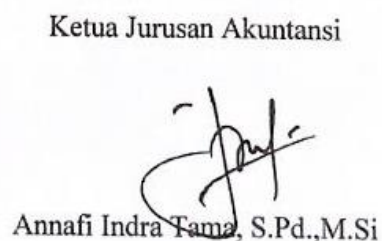 Ketua Jurusan Akuntansi
Annafi Indra Tama, S.Pd.,M.Si